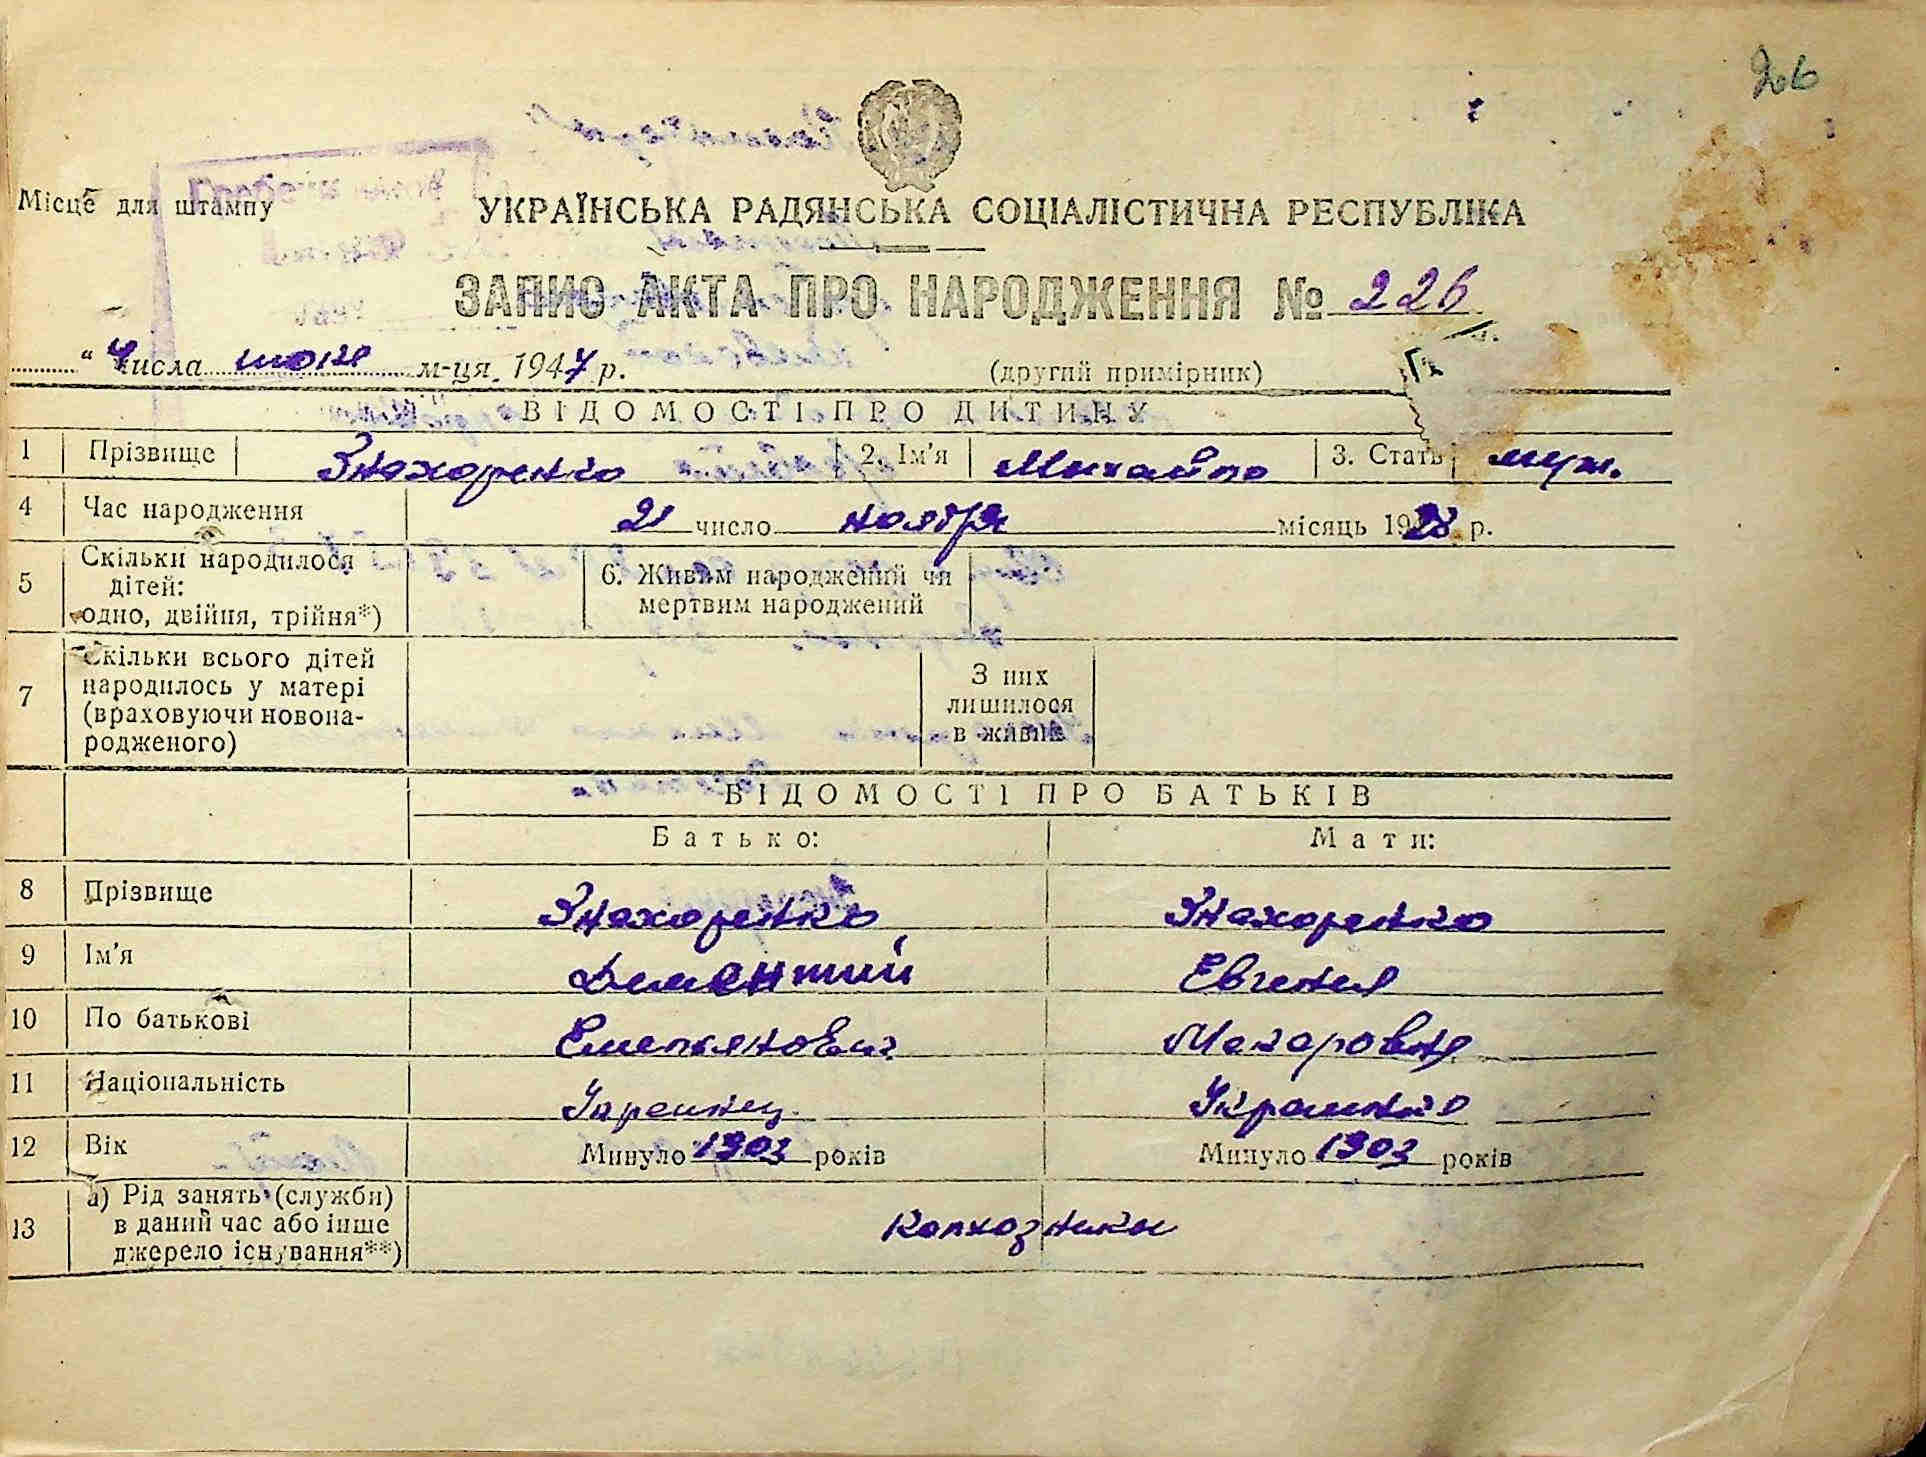 206
Місце для штампу
УКРАЇНСЬКА РАДЯНСЬКА СОЦІАЛІСТИЧНА РЕСПУБЛІКА
ЗАПИС АКТА ПРО НАРОДЖЕННЯ № 226
" числа июня м-ця 1947 р. (другий примірник)
ВІДОМОСТІ ПРО ДИТИНУ
1 Прізвище Знахоренко 2. Ім'я Михайло 3. Стать муж.
4 Час народження 21 число ноября місяць 1928 р.
5 Скільки народилося дітей: одно, двійня, трійня*) 6. Живим народжений чи мертвим народжений
7 Скільки всього дітей народилось у матері (враховуючи новонародженого) З них лишилося в живих
ВІДОМОСТІ ПРО БАТЬКІВ
Батько: Мати:
8 Прізвище Знахоренко Знахоренко
9 Ім'я Дементий Евгения
10 По батькові Емельянович Макаровня
11 Національність Украинец Украинка
12 Вік Минуло 1903 років Минуло 1903 років
13 а) Рід занять (служби) в даний час або інше джерело існування**) Колхозники